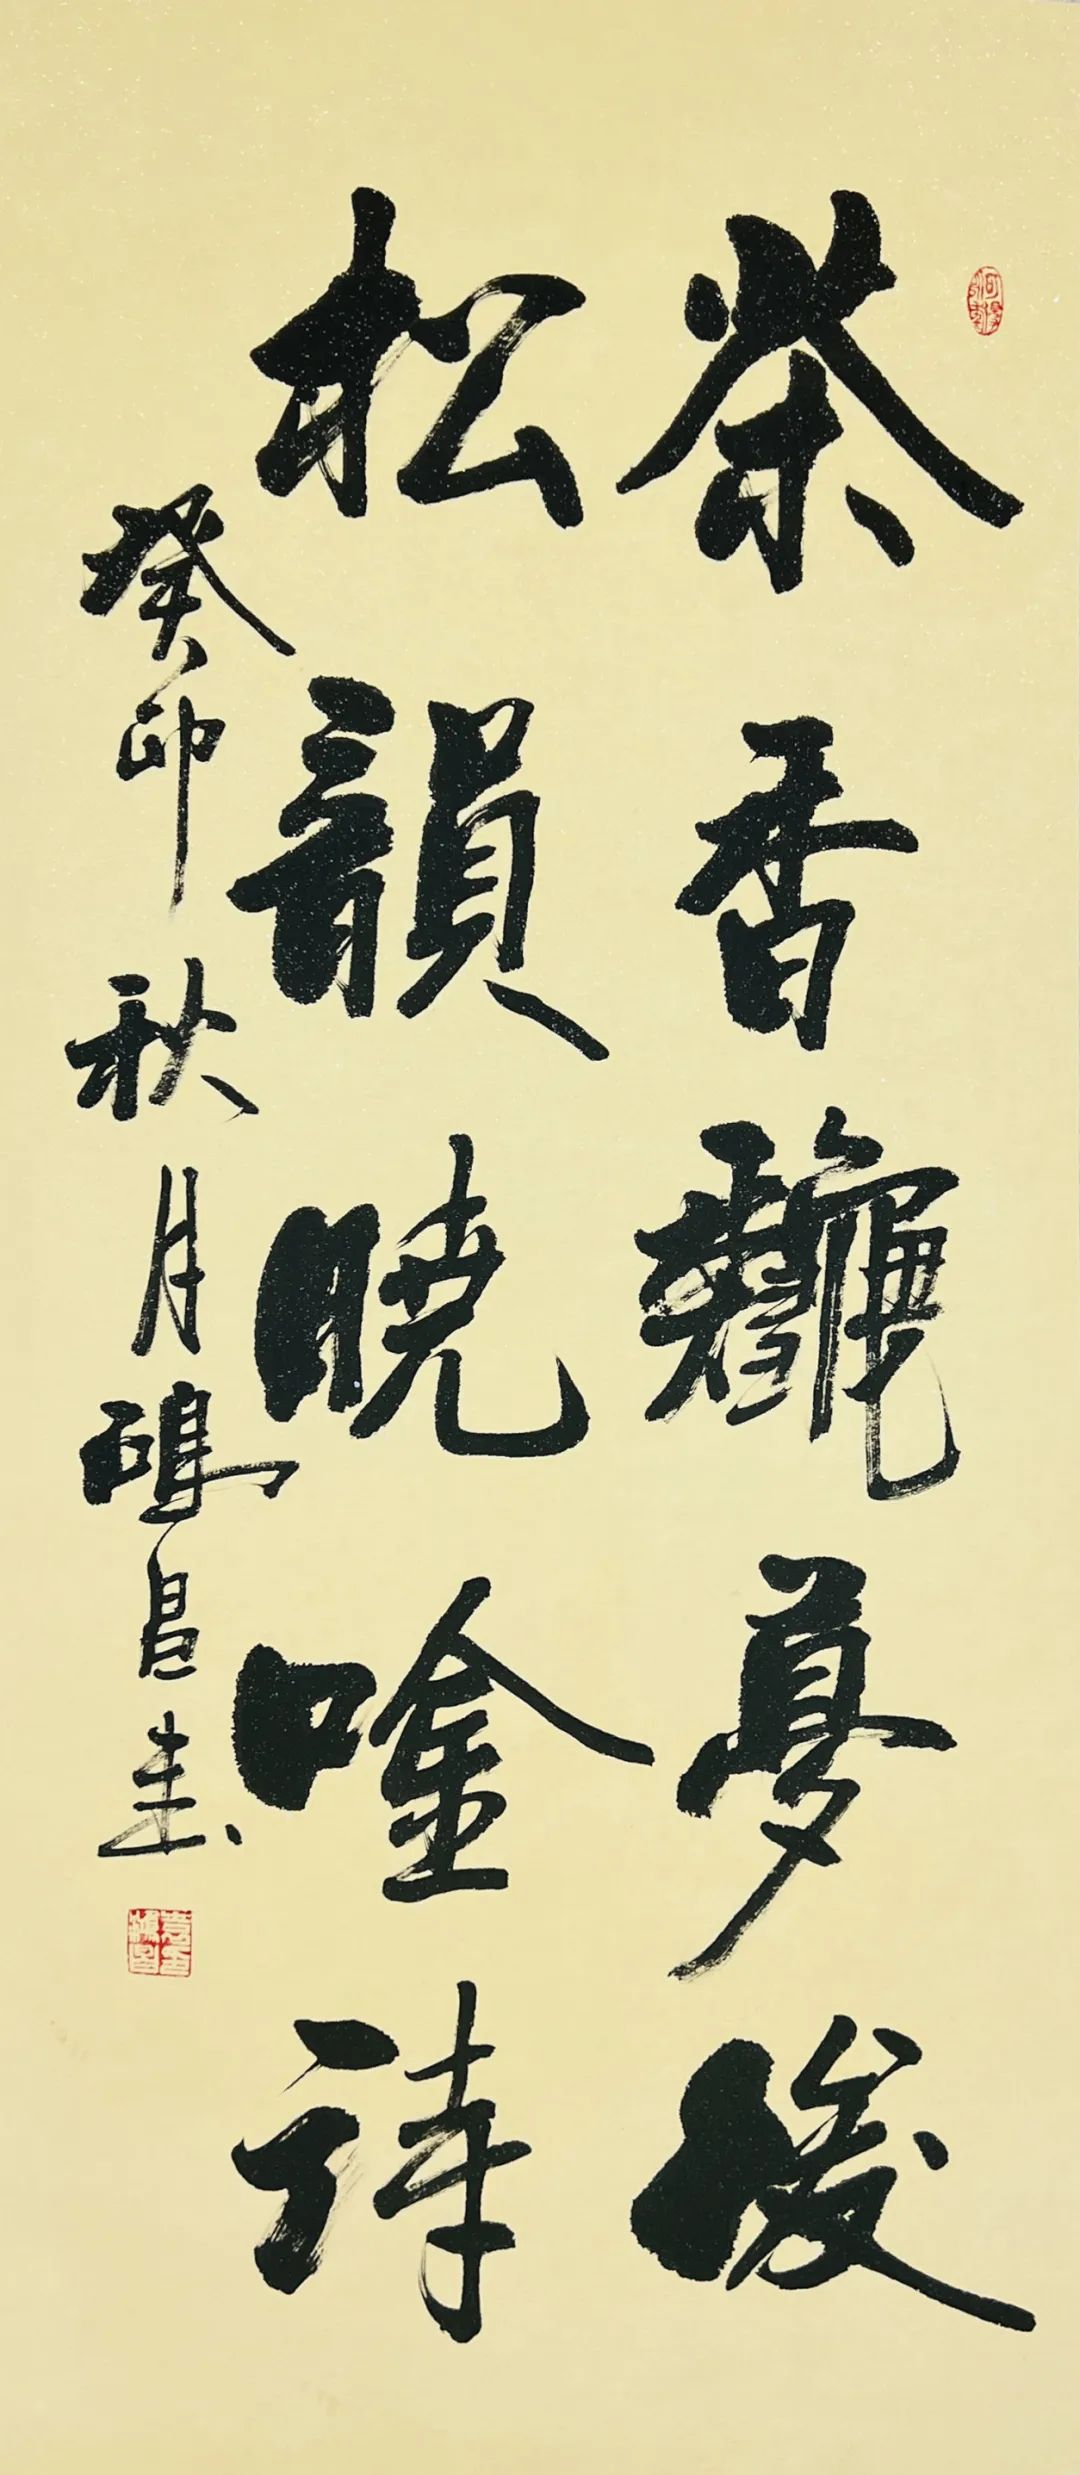 茶香龝夢後
松韻曉唫詩
癸卯秋月昌書